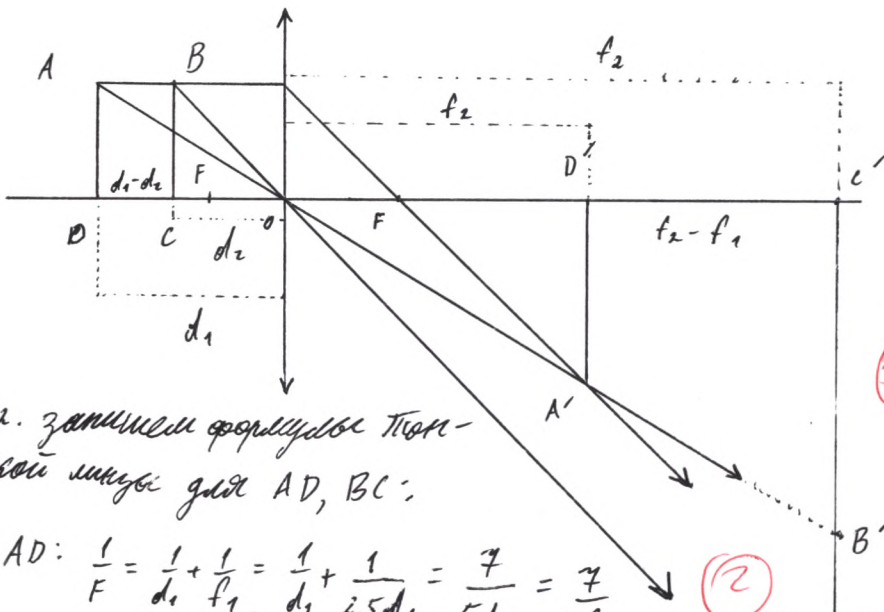 A
B
f₂
f₂
D′
C′
d₁-d₂
F
D
C
d₂
O
F
f₂ - f₁
d₁
A′
2. запишем формулы тон-
кой линзы для AD, BC:
B′
AD: 1/F = 1/d₁ + 1/f₁ = 1/d₁ + 1/2,5d₁ = 7/5d₁ = 7
2